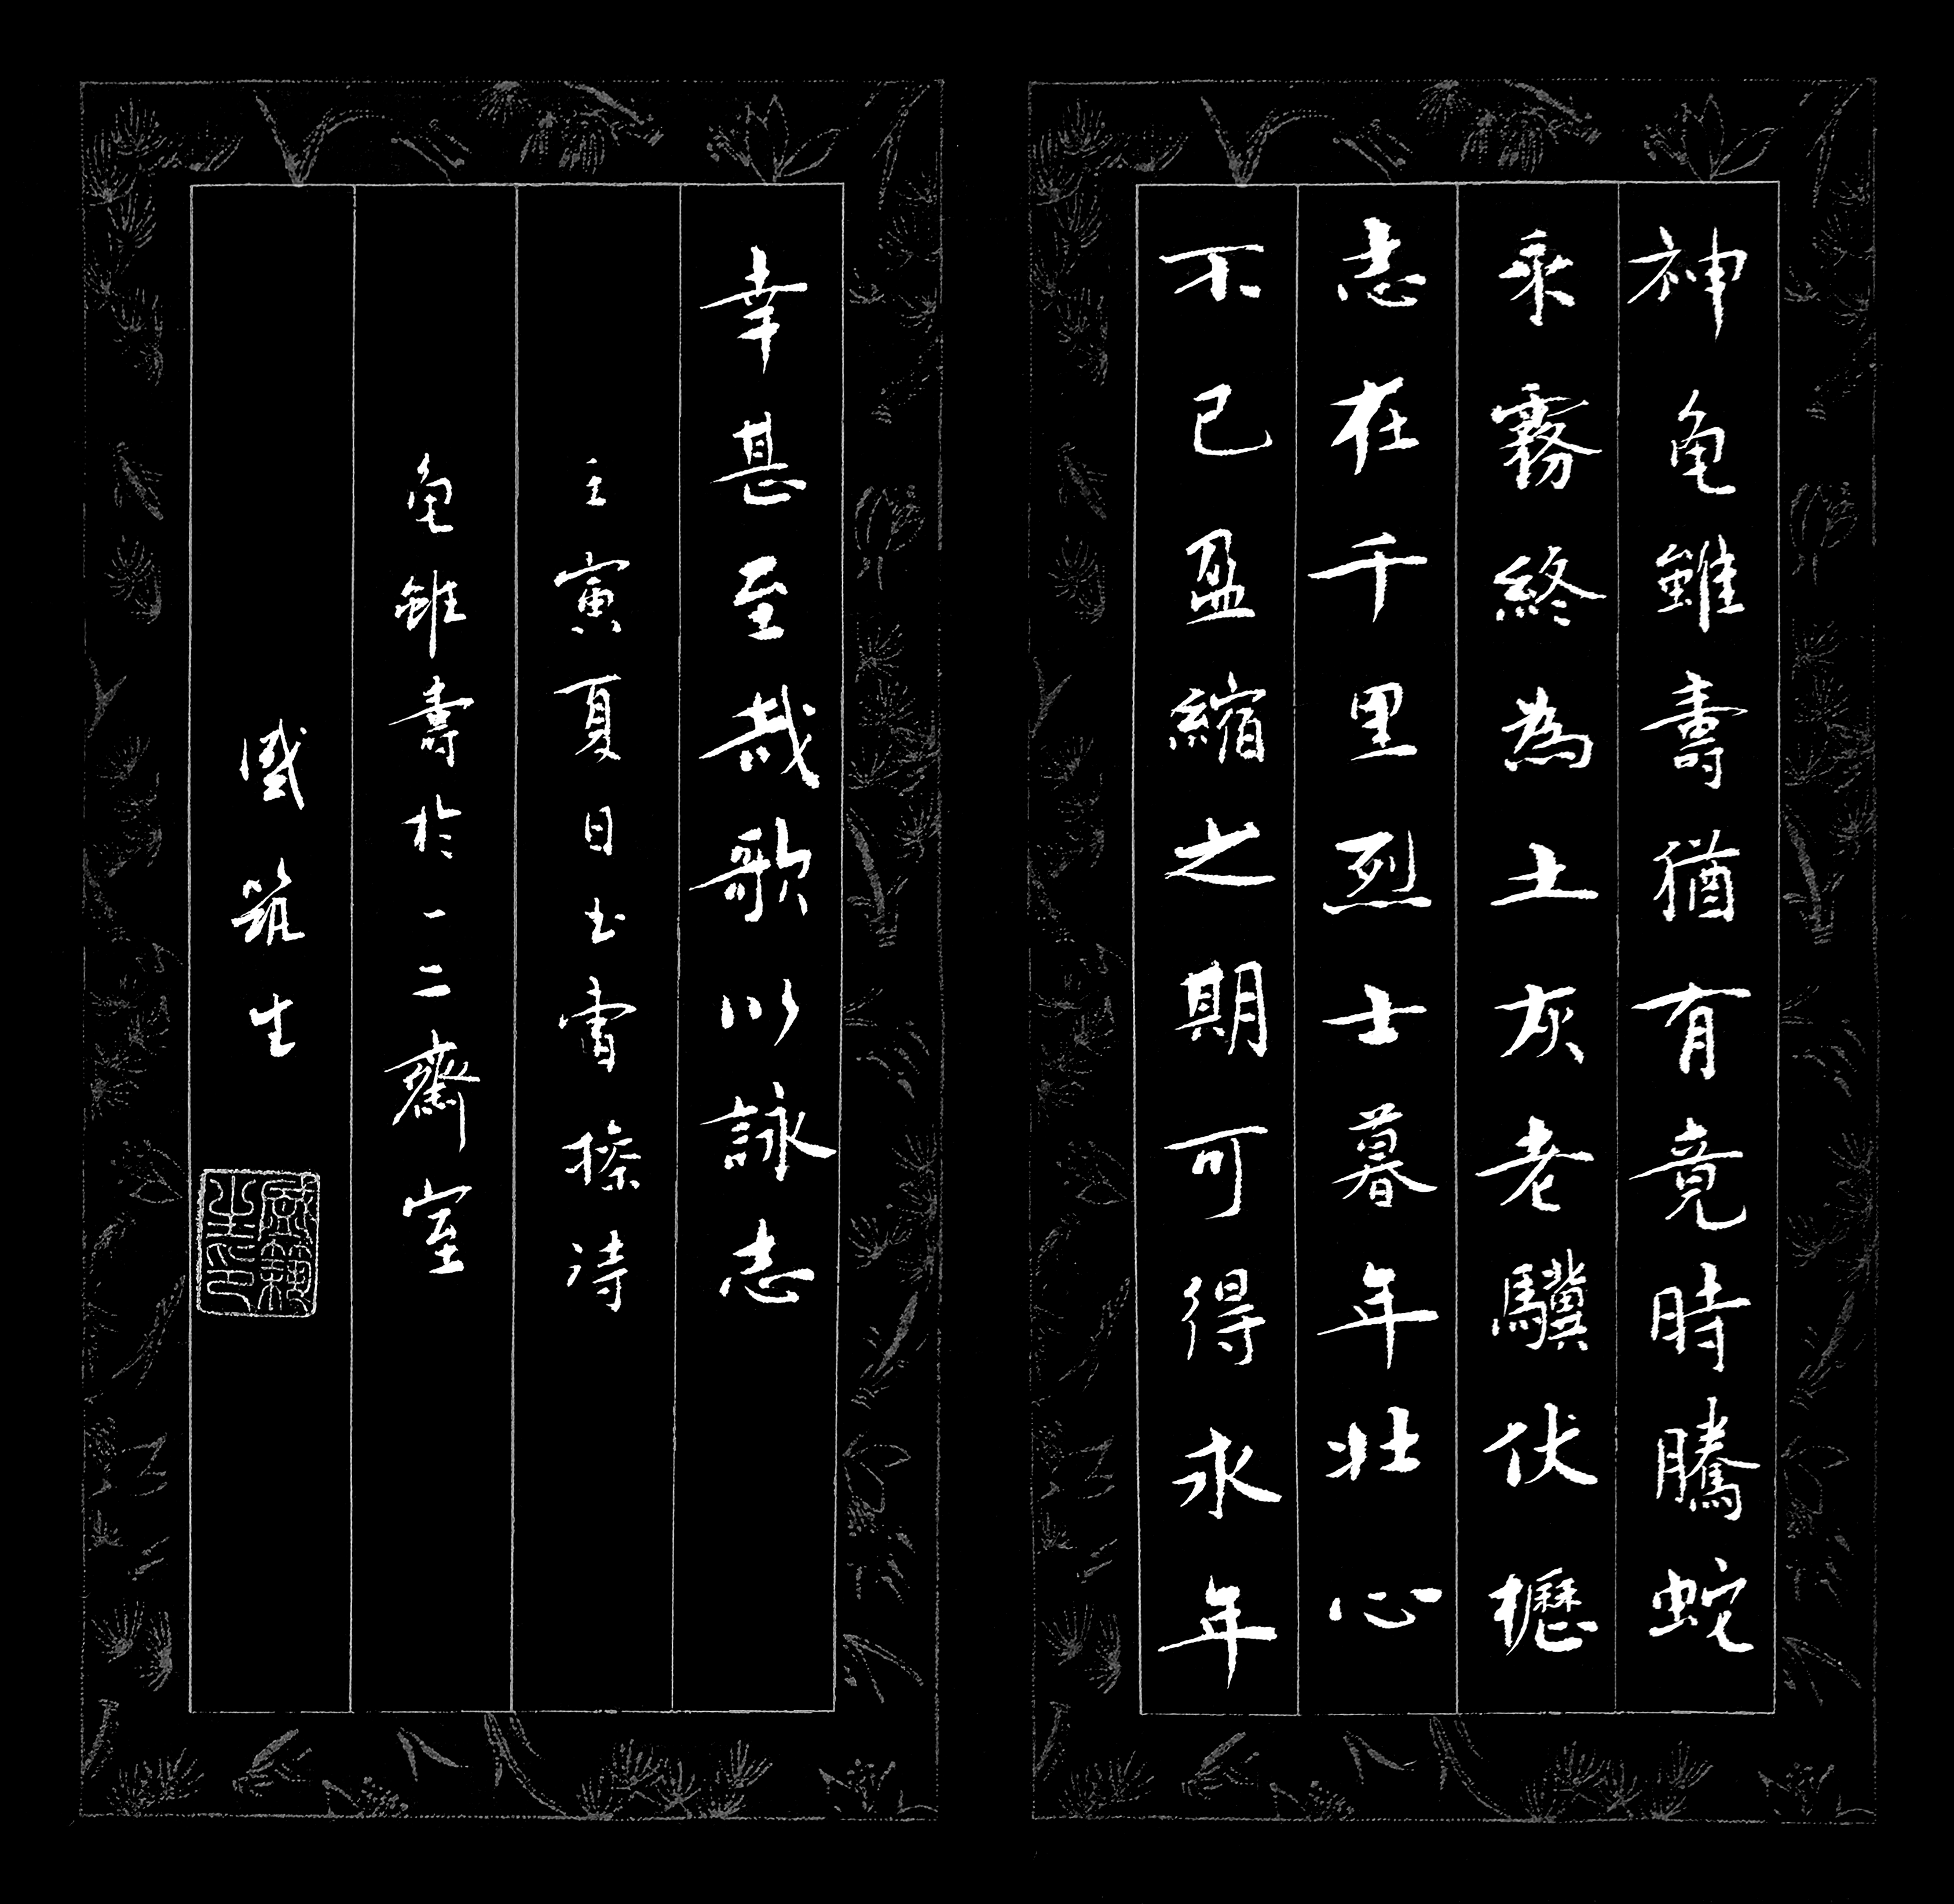 神龟雖壽猶有竟時騰蛇
乘霧終為土灰老驥伏櫪
志在千里烈士暮年壯心
不已盈縮之期可得永年
幸甚至哉歌以詠志
壬寅夏日书曹操诗
龟雖壽於一二齋室
盛筑生
盛築生印